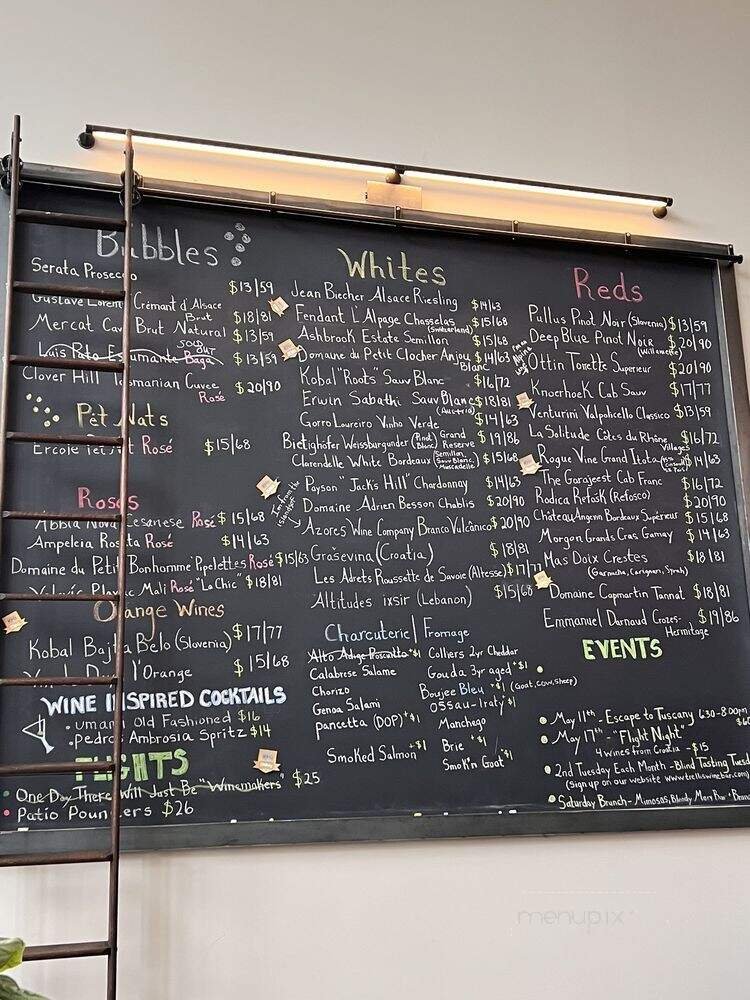 Bubbles
Serata Prosecco $13/59
Gustave Lorentz Crémant d'Alsace
Brut $18/81
Mercat Cava Brut Natural $13/59
SOLD OUT
Luis Pato Espumante Baga $13/59
Clover Hill Tasmanian Cuvee $20/90
Rosé
Pét Nats
Ercole Pet Nat Rosé $15/68
Rosés
Abbia Nova Cesanese Rosé $15/68
Ampeleia Rosata Rosé $14/63
Domaine du Petit Bonhomme Pipelettes Rosé $15/63
Mali Rosé "La Chic" $18/81
Orange Wines
Kobal Bajta Belo (Slovenia) $17/77
l'Orange $15/68
WINE INSPIRED COCKTAILS
• Umami Old Fashioned $16
• Pedro's Ambrosia Spritz $14
FLIGHTS
• One Day There Will Just Be "Winemakers" $25
• Patio Pounders $26
Whites
Jean Biecher Alsace Riesling $14/63
Fendant L'Alpage Chasselas $15/68
(Switzerland)
Ashbrook Estate Semillon $15/68
Domaine du Petit Clocher Anjou $14/63
Blanc
Kobal "Roots" Sauv Blanc $16/72
Erwin Sabathi Sauv Blanc $18/81
(Austria)
Gorro Loureiro Vinho Verde $14/63
Bietighöfer Weissburgunder (Pinot Blanc) Grand Reserve $19/86
Clarendelle White Bordeaux (Semillon, Sauv Blanc, Muscadelle) $15/68
Payson "Jack's Hill" Chardonnay $14/63
Domaine Adrien Besson Chablis $20/90
I'm from the
Azores Wine Company Branco Vulcânico $20/90
Graševina (Croatia) $18/81
Les Adrets Roussette de Savoie (Altesse) $17/77
Altitudes ixsir (Lebanon) $15/68
Charcuterie/Fromage
Alto Adige Proscuitto +$1
Calabrese Salame
Chorizo
Genoa Salami
Pancetta (DOP) +$1
Smoked Salmon +$1
Colliers 2yr Cheddar
Gouda 3yr aged +$1
Boujee Bleu +$1 (Goat, cow, sheep)
Ossau-Iraty +$1
Manchego
Brie +$1
Smok'n Goat +$1
Reds
Pullus Pinot Noir (Slovenia) $13/59
Deep Blue Pinot Noir $20/90
(Willamette)
Ottin Torrette Superieur $20/90
Knoerhoek Cab Sauv $17/77
Venturini Valpolicello Classico $13/59
La Solitude Côtes du Rhône $16/72
Villages
Rogue Vine Grand Itata $14/63
The Garajeest Cab Franc $16/72
Rodica Refosk (Refosco) $20/90
Château Angenn Bordeaux Supérieur $15/68
Morgon Grands Cras Gamay $14/63
Mas Doix Crestes $18/81
(Garnacha, Carignan, Syrah)
Domaine Capmartin Tannat $18/81
Emmanuel Darnaud Crozes- $19/86
Hermitage
EVENTS
• May 11th - Escape to Tuscany 6:30-8:00pm
• May 17th - "Flight Night"
4 wines from Croatia - $15
• 2nd Tuesday Each Month - Blind Tasting Tuesd
(Sign up on our website www.trelliswinebar.com)
• Saturday Brunch - Mimosas, Bloody Mary Bar
menupix